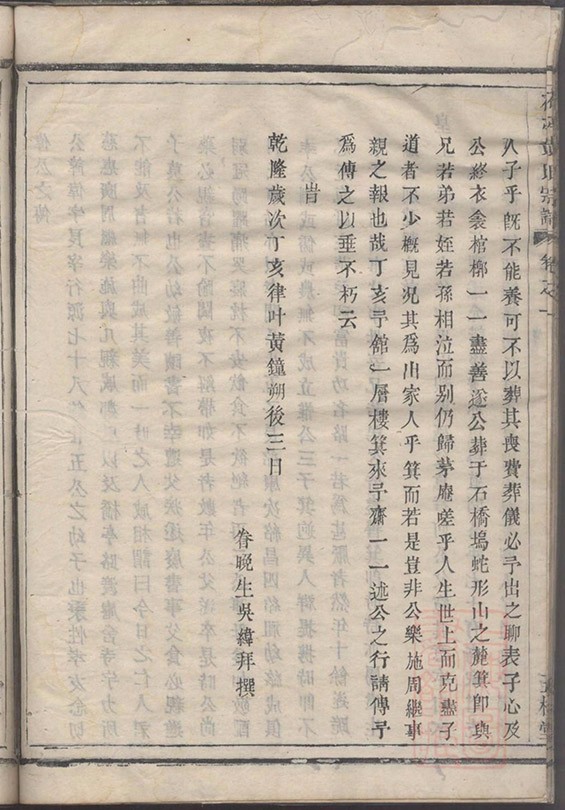 人子乎旣不能養可不以葬其喪費葬儀必予出之聊表子心及
公終衣衾棺槨一一盡善遂公葬于石橋塢蛇形山之麓箕卽與
兄若弟若姪若孫相泣而别仍歸茅庵嗟乎人生世上而克盡子
道者不少概見况其爲出家人乎箕而若是豈非公樂施周繼事
親之報也哉丁亥予館一層樓箕來予齋一一述公之行請傳予
爲傳之以垂不朽云
旹
乾隆歲次丁亥律叶黃鐘朔後三日
眷晚生吳緯拜撰
宗譜 卷之一